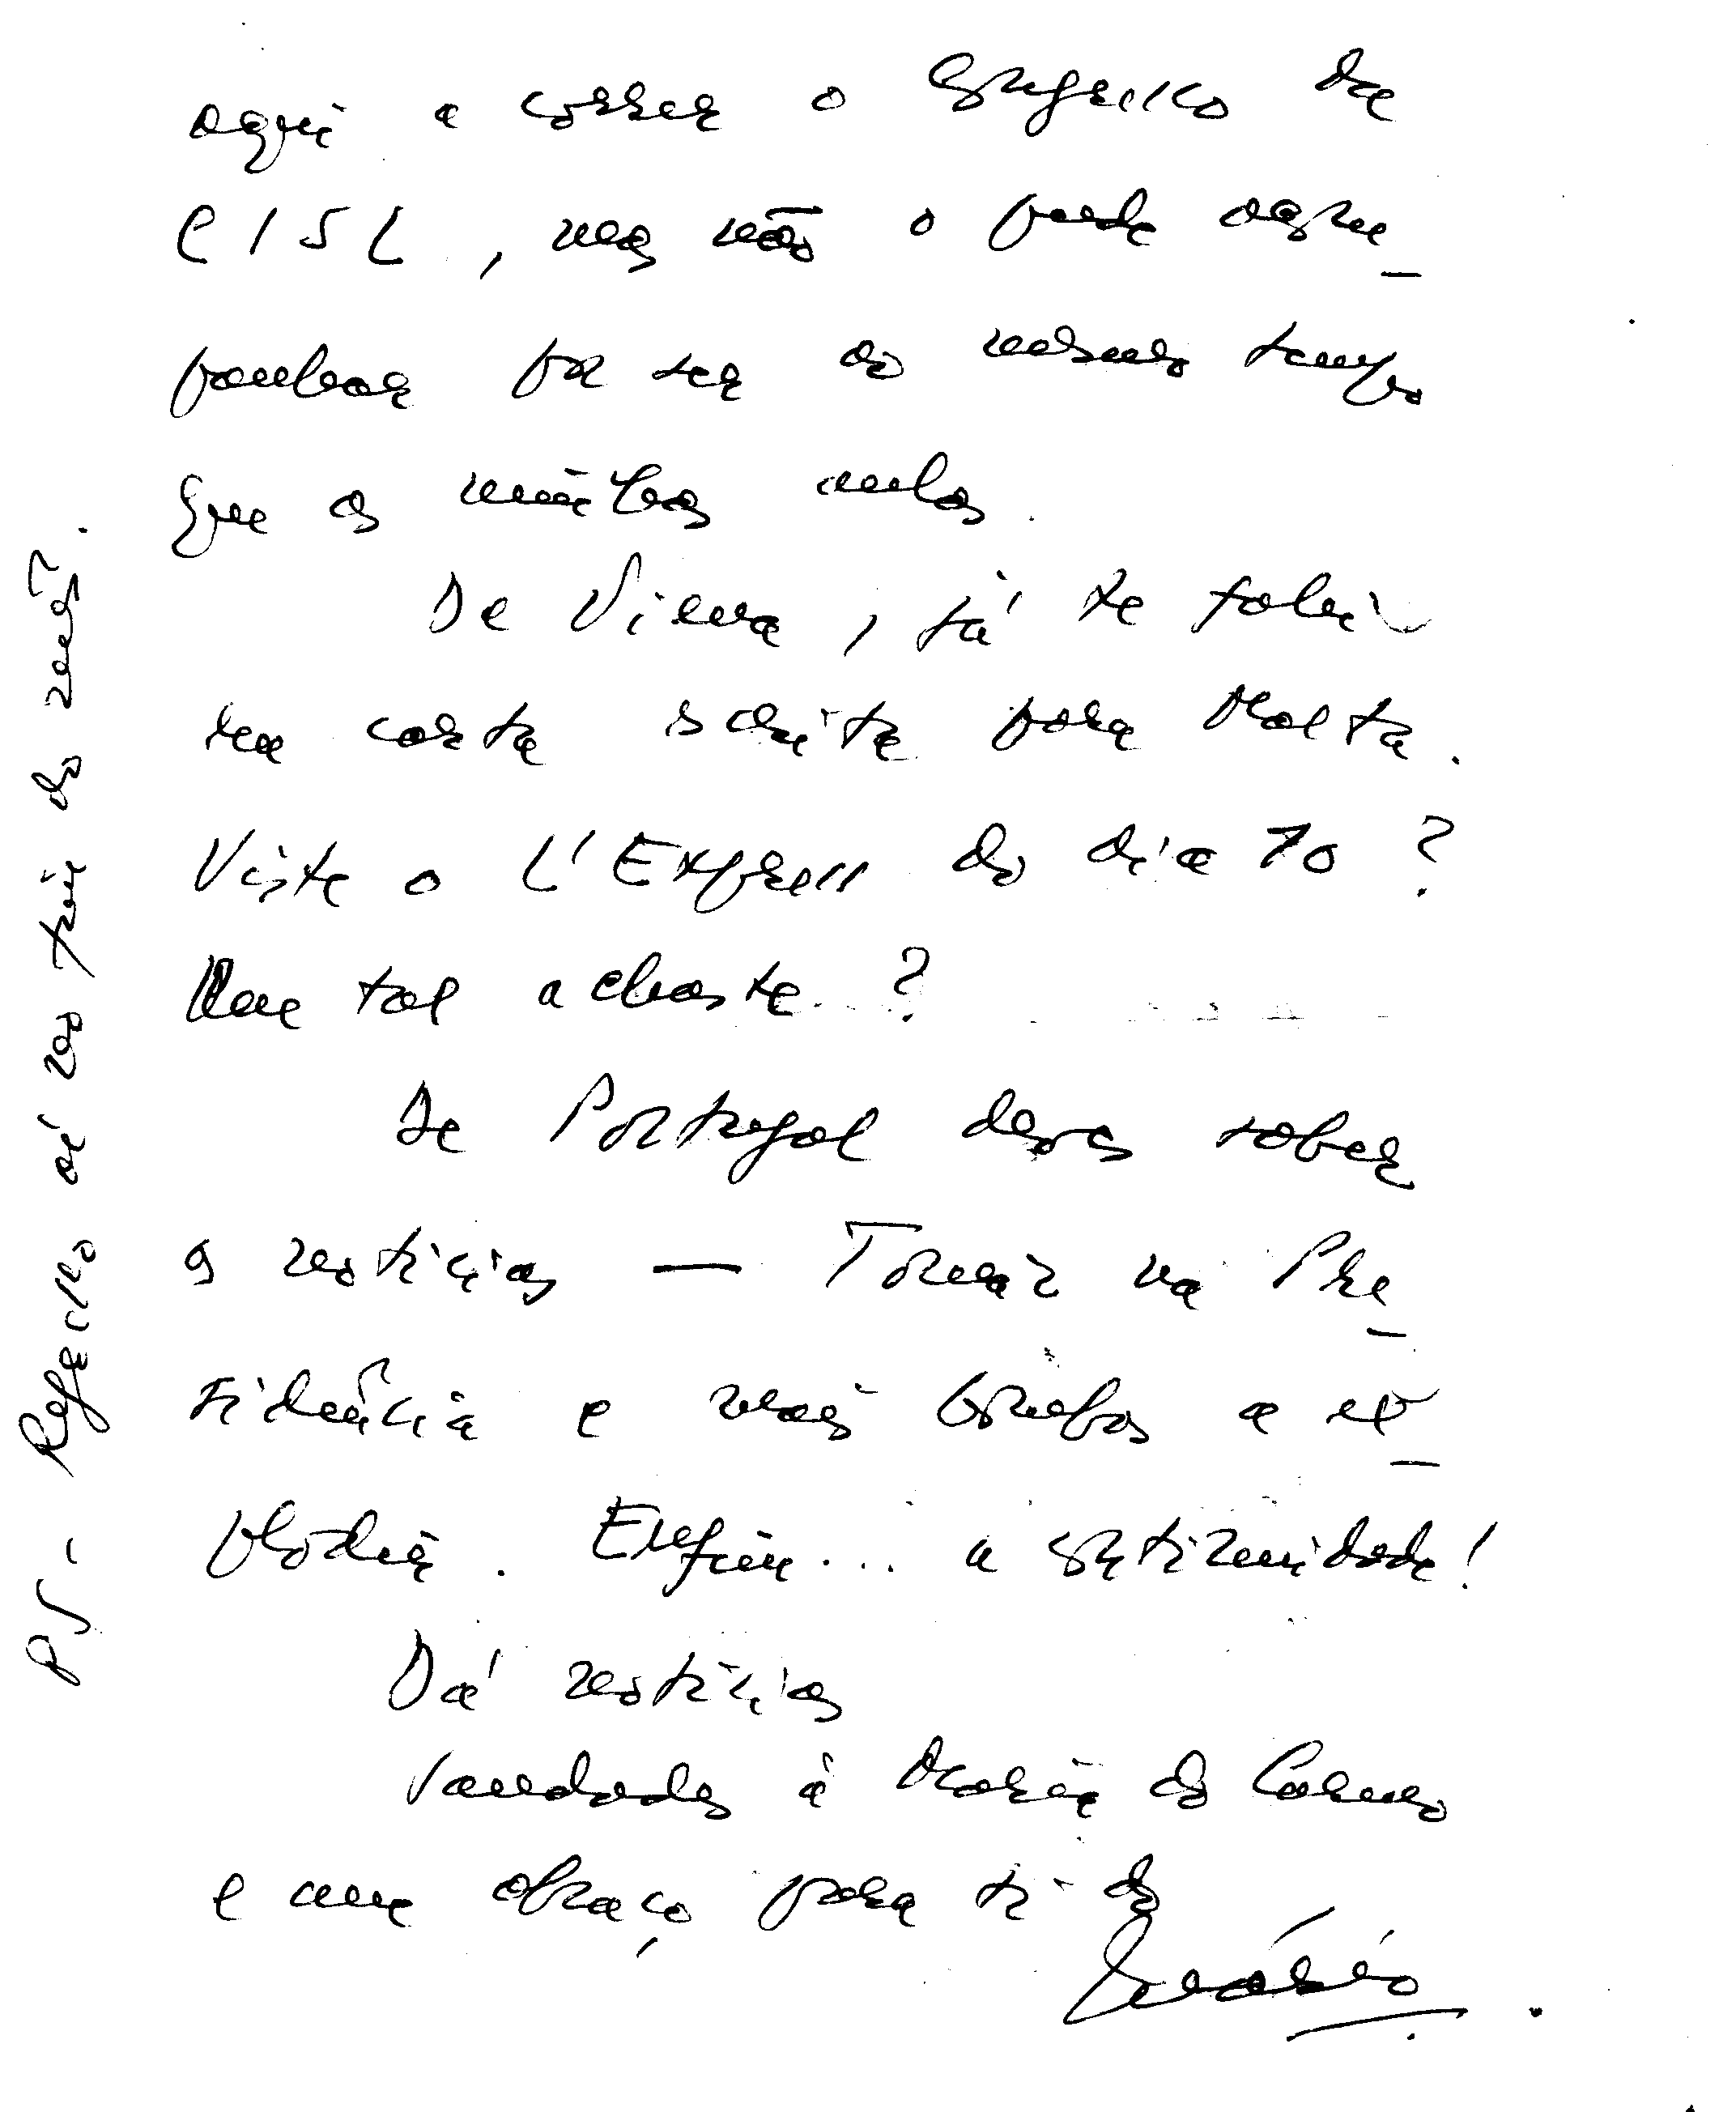 aqui a correr o Congresso da
CISL, mas não o pude acom-
panhar por ser ao mesmo tempo
que as minhas aulas.
De Viena, já te falei
na carta escrita para Malta.
Viste o L'Express do dia 10?
Que tal achaste?
De Portugal deves saber
as notícias — Tomaz na Pre-
sidência e mais bombas a ex-
plodir. Enfim... a
Dá notícias
Saudades à Maria do Carmo
e um abraço para ti do
Mário
PS - Regresso aí no fim do mês.